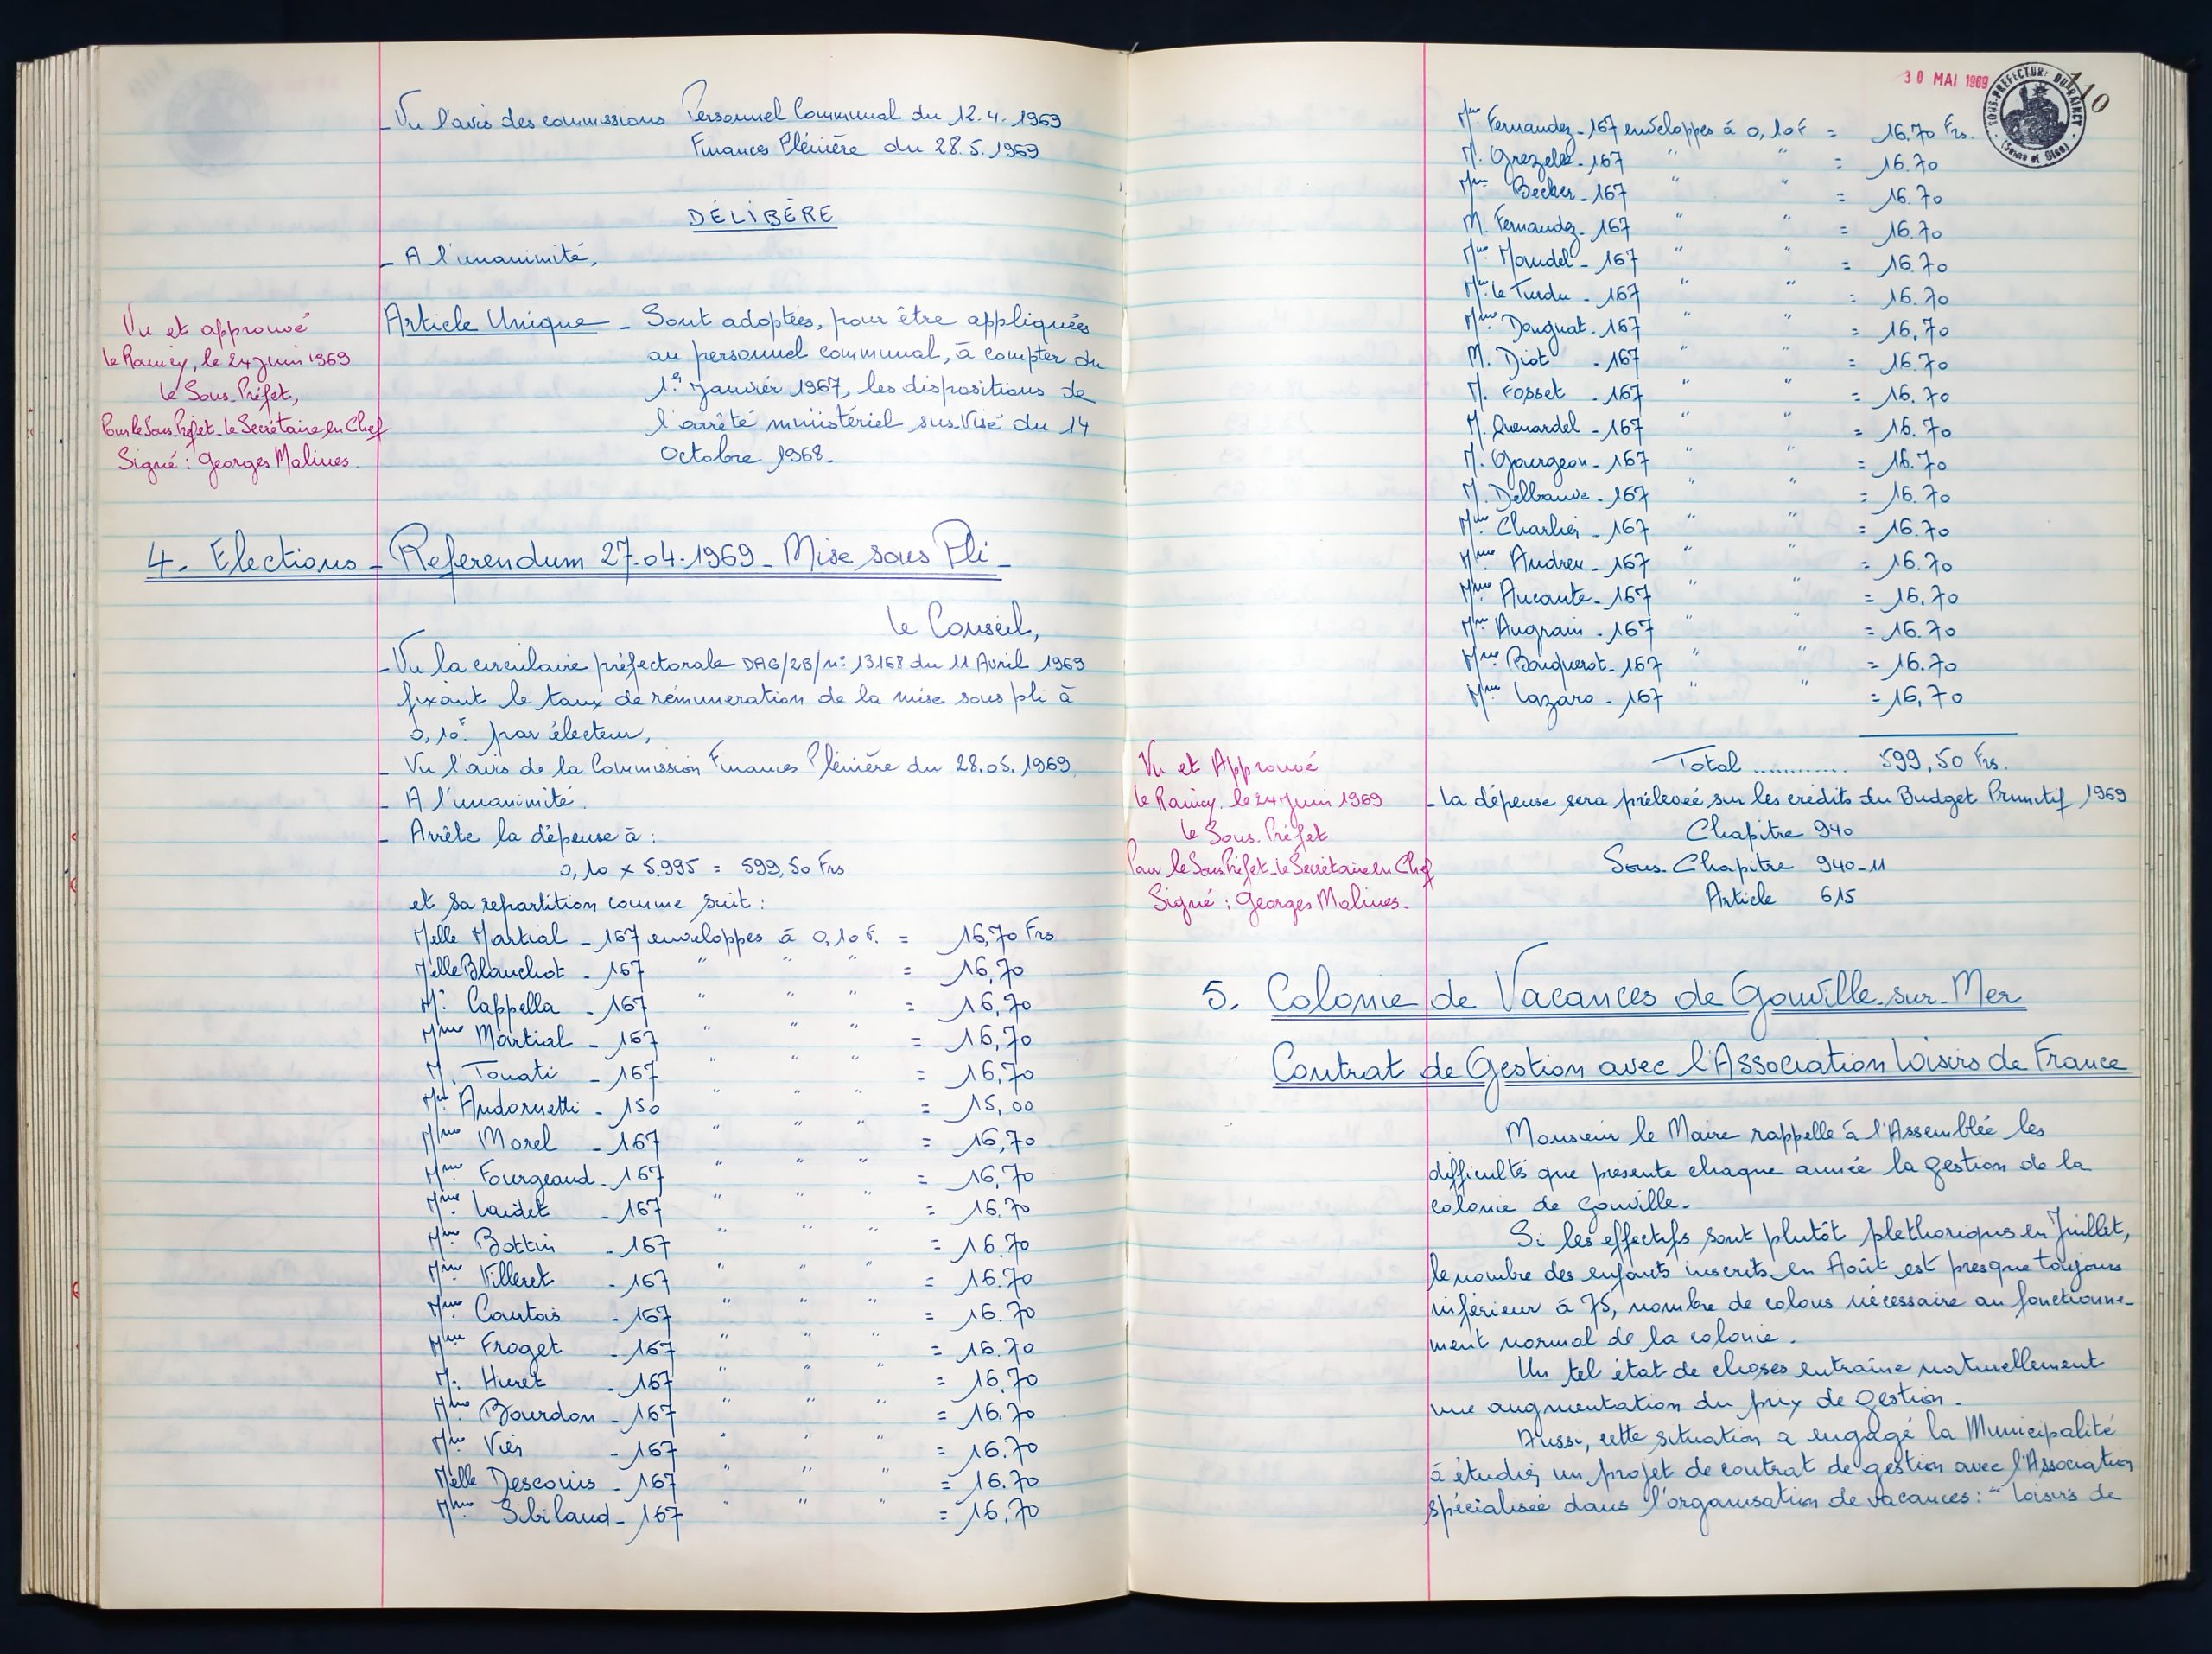 - Vu l'avis des commissions Personnel Communal du 12.4.1969
Finances Plénière du 28.5.1969
DÉLIBÈRE
- A l'unanimité,
Vu et approuvé
le Raincy, le 24 Juin 1969
le Sous-Préfet,
Pour le Sous-Préfet - le Secrétaire en Chef
Signé : Georges Malines.
Article Unique - Sont adoptées, pour être appliquées
au personnel communal, à compter du
1er Janvier 1967, les dispositions de
l'arrêté ministériel sus-visé du 14
Octobre 1968.
4. Elections - Referendum 27.04.1969 - Mise sous Pli -
le Conseil,
- Vu la circulaire préfectorale DAG/2B/n° 13168 du 11 Avril 1969
fixant le taux de rémuneration de la mise sous pli à
0,10F par électeur,
- Vu l'avis de la Commission Finances Plénière du 28.05.1969
- A l'unanimité.
- Arrête la dépense à :
0,10 x 5.995 = 599,50 Frs
et sa repartition comme suit :
Melle Martial - 167 enveloppes à 0,10 F. = 16,70 Frs
Melle Blanchot - 167 " " " = 16,70
M. Cappella - 167 " " " = 16,70
Mme Martial - 167 " " " = 16,70
M. Touati - 167 " " " = 16,70
Mr Andornetti - 150 " " " = 15,00
Mme Morel - 167 " " " = 16,70
Mme Fourgeaud - 167 " " " = 16,70
Mme Laidet - 167 " " " = 16.70
Mme Bottin - 167 " " " = 16.70
Mme Villeret - 167 " " " = 16.70
Mme Courtois - 167 " " " = 16.70
Mme Froget - 167 " " " = 16.70
M. Huret - 167 " " " = 16.70
Mme Bourdon - 167 " " " = 16.70
Mme Vier - 167 " " " = 16.70
Melle Descouis - 167 " " " = 16.70
Mme Sibilaud - 167 " " " = 16.70
30 MAI 1969
SOUS-PRÉFECTURE DU RAINCY
(Seine et Oise)
110
Mme Fernandez - 167 enveloppes à 0,10 F = 16.70 Frs.
M. Grezelez - 167 " " = 16.70
Mme Becker - 167 " " = 16.70
M. Fernandez - 167 " " = 16.70
Mme Mandel - 167 " " = 16.70
Mme Le Turdu - 167 " " = 16.70
Mme Donguat - 167 " " = 16,70
M. Diot - 167 " " = 16.70
M. Fosset - 167 " " = 16.70
M. Quenardel - 167 " " = 16.70
M. Gourgeon - 167 " " = 16.70
M. Delbauve - 167 " " = 16.70
Mme Charlier - 167 " " = 16.70
Mme Andreu - 167 " " = 16.70
Mme Aucante - 167 " " = 16.70
Mme Augrain - 167 " " = 16.70
Mme Bouquerot - 167 " " = 16.70
Mme Lazaro - 167 " " = 16,70
Total ............ 599,50 Frs.
Vu et Approuvé
le Raincy, le 24 Juin 1969
le Sous-Préfet
Pour le Sous-Préfet - le Secrétaire en Chef
Signé : Georges Malines.
- la dépense sera prélevée sur les crédits du Budget Primitif 1969
Chapitre 940
Sous-Chapitre 940-11
Article 615
5. Colonie de Vacances de Gouville-sur-Mer
Contrat de Gestion avec l'Association Loisirs de France
Monsieur le Maire rappelle à l'Assemblée les
difficultés que présente chaque année la gestion de la
colonie de Gouville.
Si les effectifs sont plutôt plethoriques en Juillet,
le nombre des enfants inscrits en Août est presque toujours
inférieur à 75, nombre de colons nécessaire au fonctionne-
ment normal de la colonie.
Un tel état de choses entraîne naturellement
une augmentation du prix de gestion.
Aussi, cette situation a engagé la Municipalité
à étudier un projet de contrat de gestion avec l'Association
spécialisée dans l'organisation de vacances : " Loisirs de